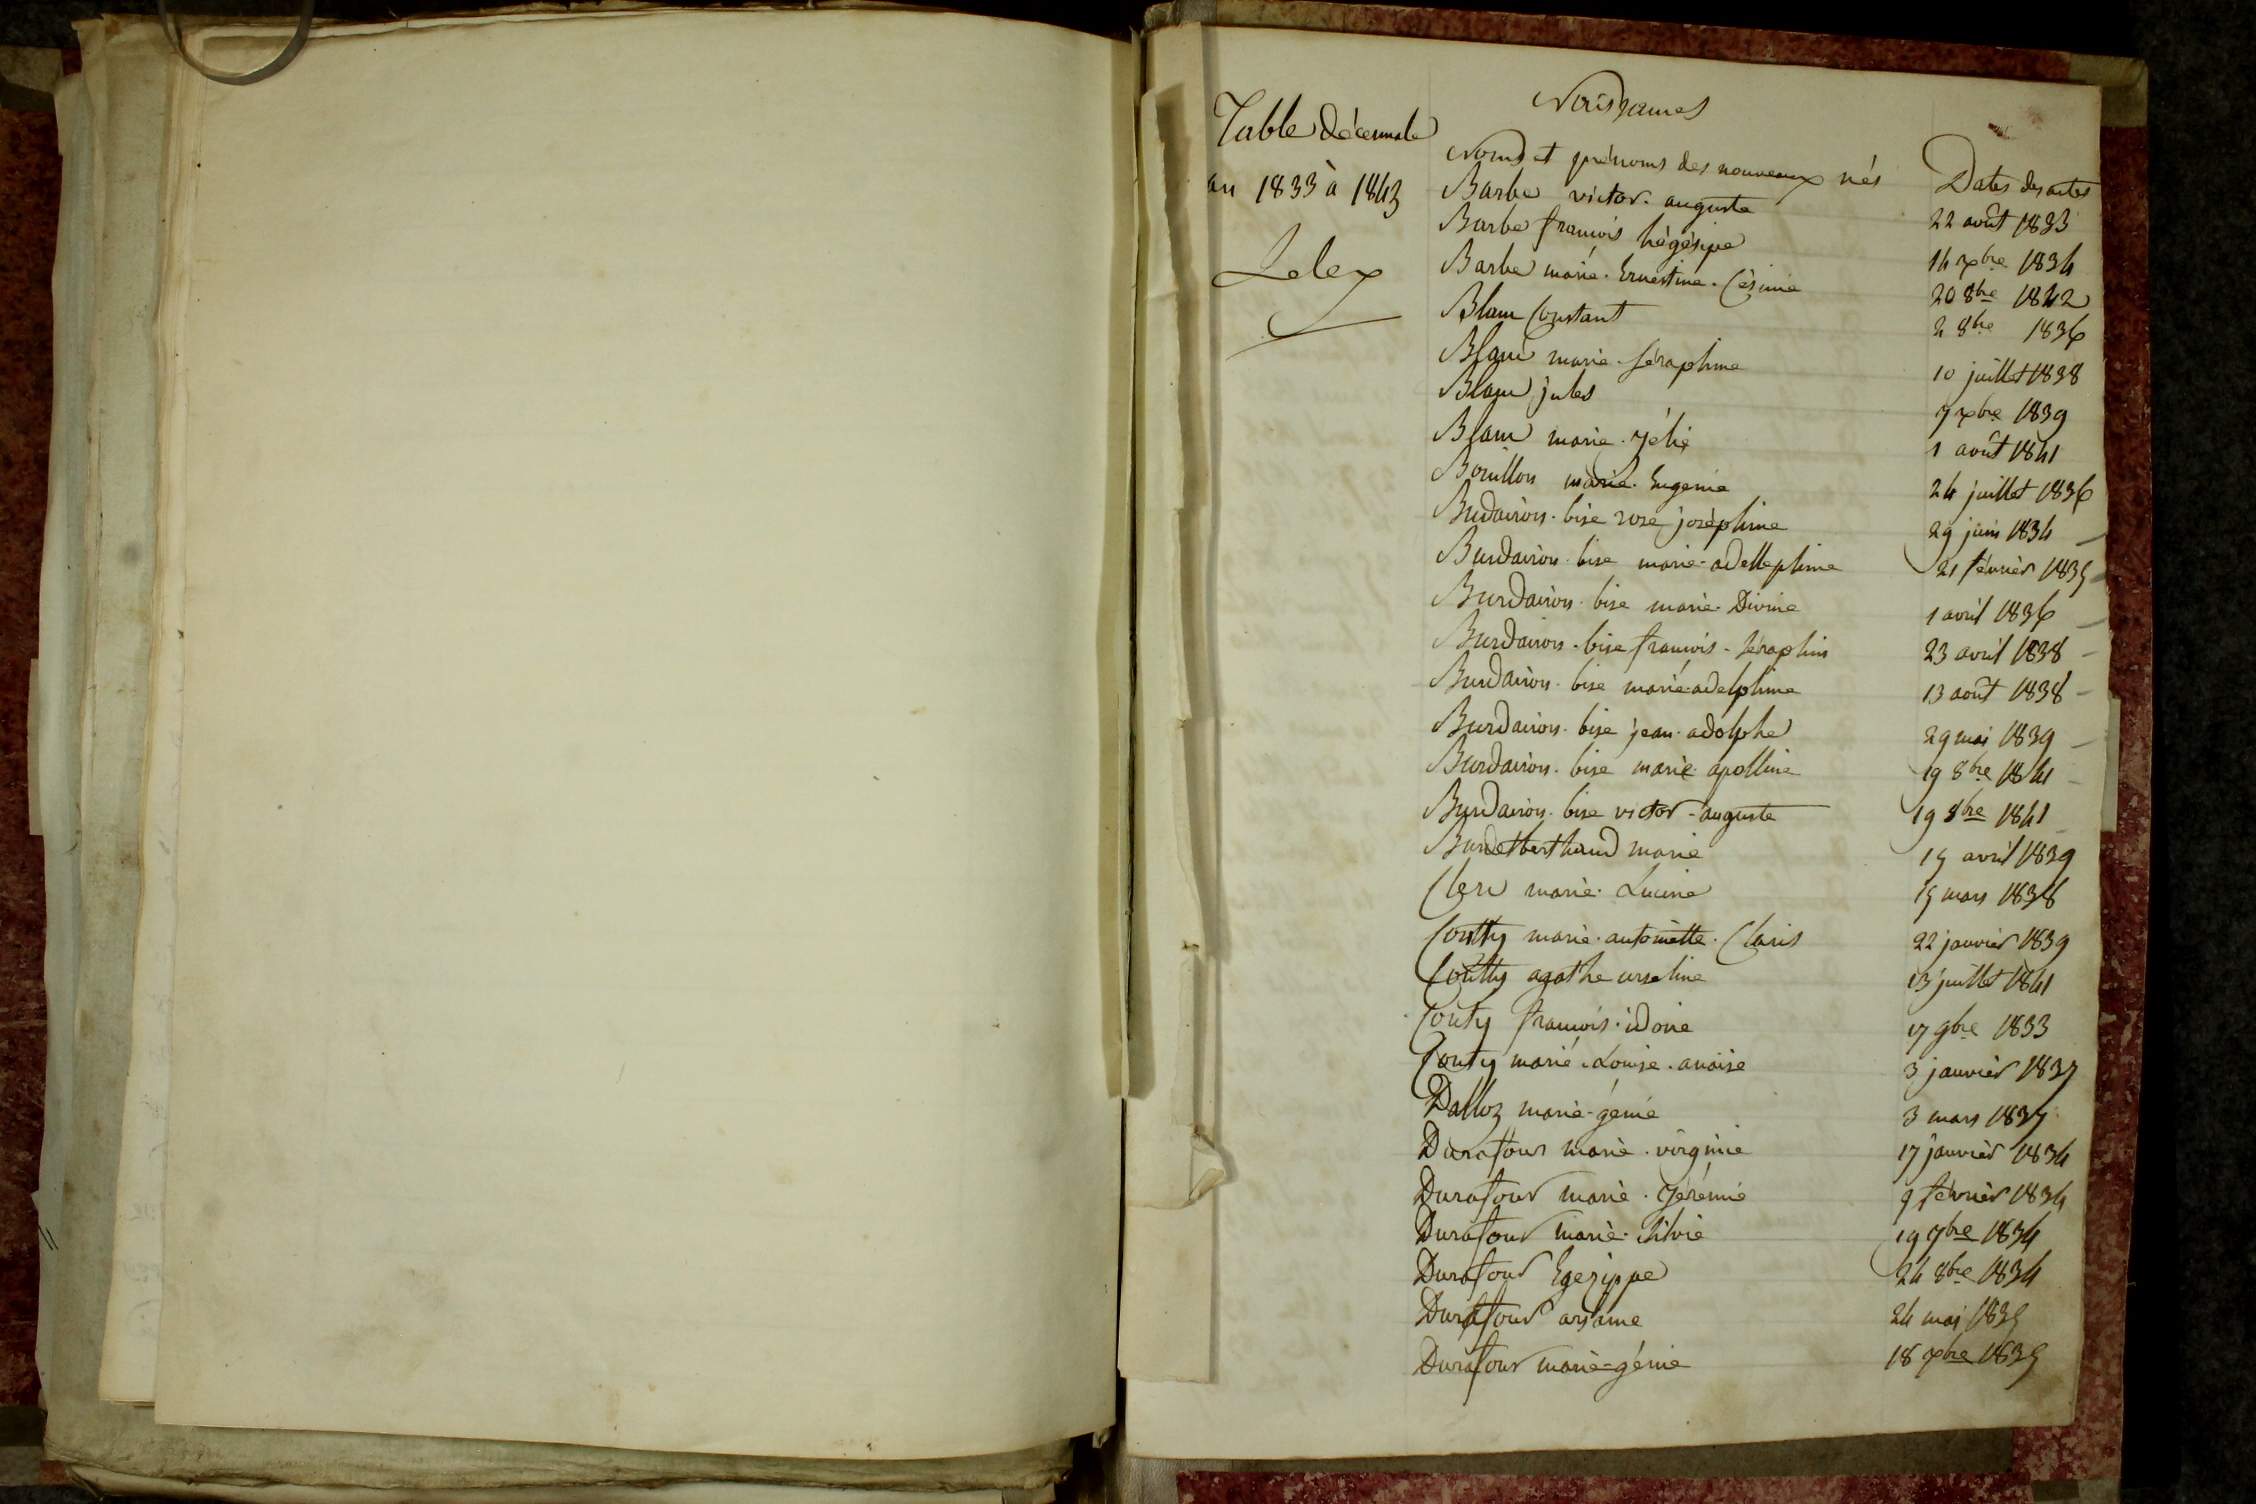 Table décennale
an 1833 à 1843
Lelex
Naissances
Noms et prénoms des nouveaux nés Dates des actes
Barbe victor auguste 22 août 1833
Barbe francois hégésipe 14 xbre 1834
Barbe marie Ernestine Césinie 20 8bre 1842
Blanc Constant 2 8bre 1836
Blanc marie Séraphine 10 juillet 1838
Blanc jules 7 xbre 1839
Blanc marie zélie 1 août 1841
Bouillon marie Eugenie 24 juillet 1836
Burdairon bise rose joséphine 29 juin 1834
Burdairon bise marie adellephine 21 février 1835
Burdairon bise marie Divine 1 avril 1836
Burdairon bise francois Séraphin 23 avril 1838
Burdairon bise marie adelphine 13 août 1838
Burdairon bise jean adolphe 29 mai 1839
Burdairon bise marie apolline 19 8bre 1841
Burdairon bise victor auguste 19 8bre 1841
Burdetberthaud marie 15 avril 1839
Clerc marie Lucine 15 mars 1838
Coutty marie antoinette Claris 22 janvier 1839
Coutty agathe urseline 13 juillet 1841
Couty francois idoie 17 9bre 1833
Couty marie Louise anaïse 3 janvier 1837
Dalloz marie génie 3 mars 1837
Durafour marie virginie 17 janvier 1834
Durafour marie jérémie 9 février 1834
Durafour marie Silvie 19 7bre 1834
Durafour Egezippe 24 8bre 1834
Durafour arsaine 24 mai 1835
Durafour marie génie 18 xbre 1835